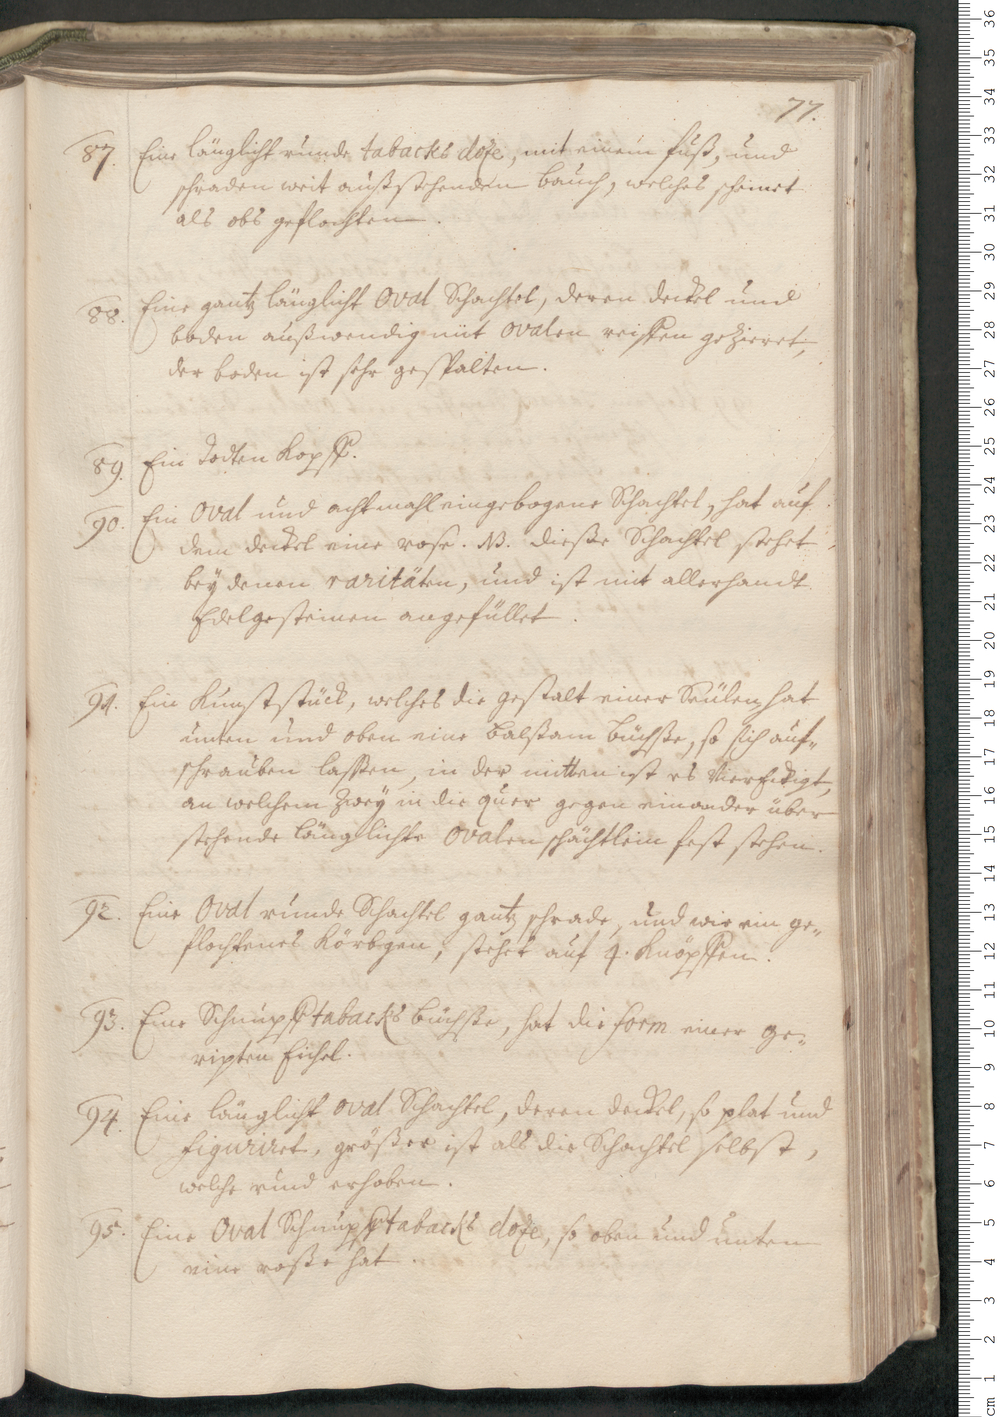 77.
87. Eine länglicht runde tabacks dose, mit einem fuß, und
schraden weit außstehenden bauch, welches scheinet
als obs geflochten.
88. Eine gantz länglicht Oval Schachtel, deren deckel und
boden außwendig mit Ovalen reiffen gezieret,
der boden ist sehr gespalten.
89. Ein Todten Kopff.
90. Ein Oval und achtmahl eingebogene Schachtel, hat auf
dem deckel eine rose. NB. dieße Schachtel stehet
bey denen raritäten, und ist mit allerhandt
Edelgesteinen angefüllet.
91. Ein Kunststück, welches die gestalt einer Säulen hat
unten und oben eine balßam büchße, so sich auf-
schrauben laßen, in der mitten ist es Viereckigt,
an welchem zwey in die quer gegen einander über
stehende länglichte Ovalen schächtlein fest stehen.
92. Eine Oval runde Schachtel gantz schrade, und wie ein ge-
flochtenes Körbgen, stehet auf 4. Knöpffen.
93. Eine Schnupfftabacks büchße, hat die form einer ge-
ripten Eichel.
94. Eine länglicht oval Schachtel, deren deckel, so plat und
figuriret, größer ist als die Schachtel selbst,
welche rund erhoben.
95. Eine Oval Schnupfftabacks dose, so oben und unten
eine roße hat.
cm 1 2 3 4 5 6 7 8 9 10 11 12 13 14 15 16 17 18 19 20 21 22 23 24 25 26 27 28 29 30 31 32 33 34 35 36